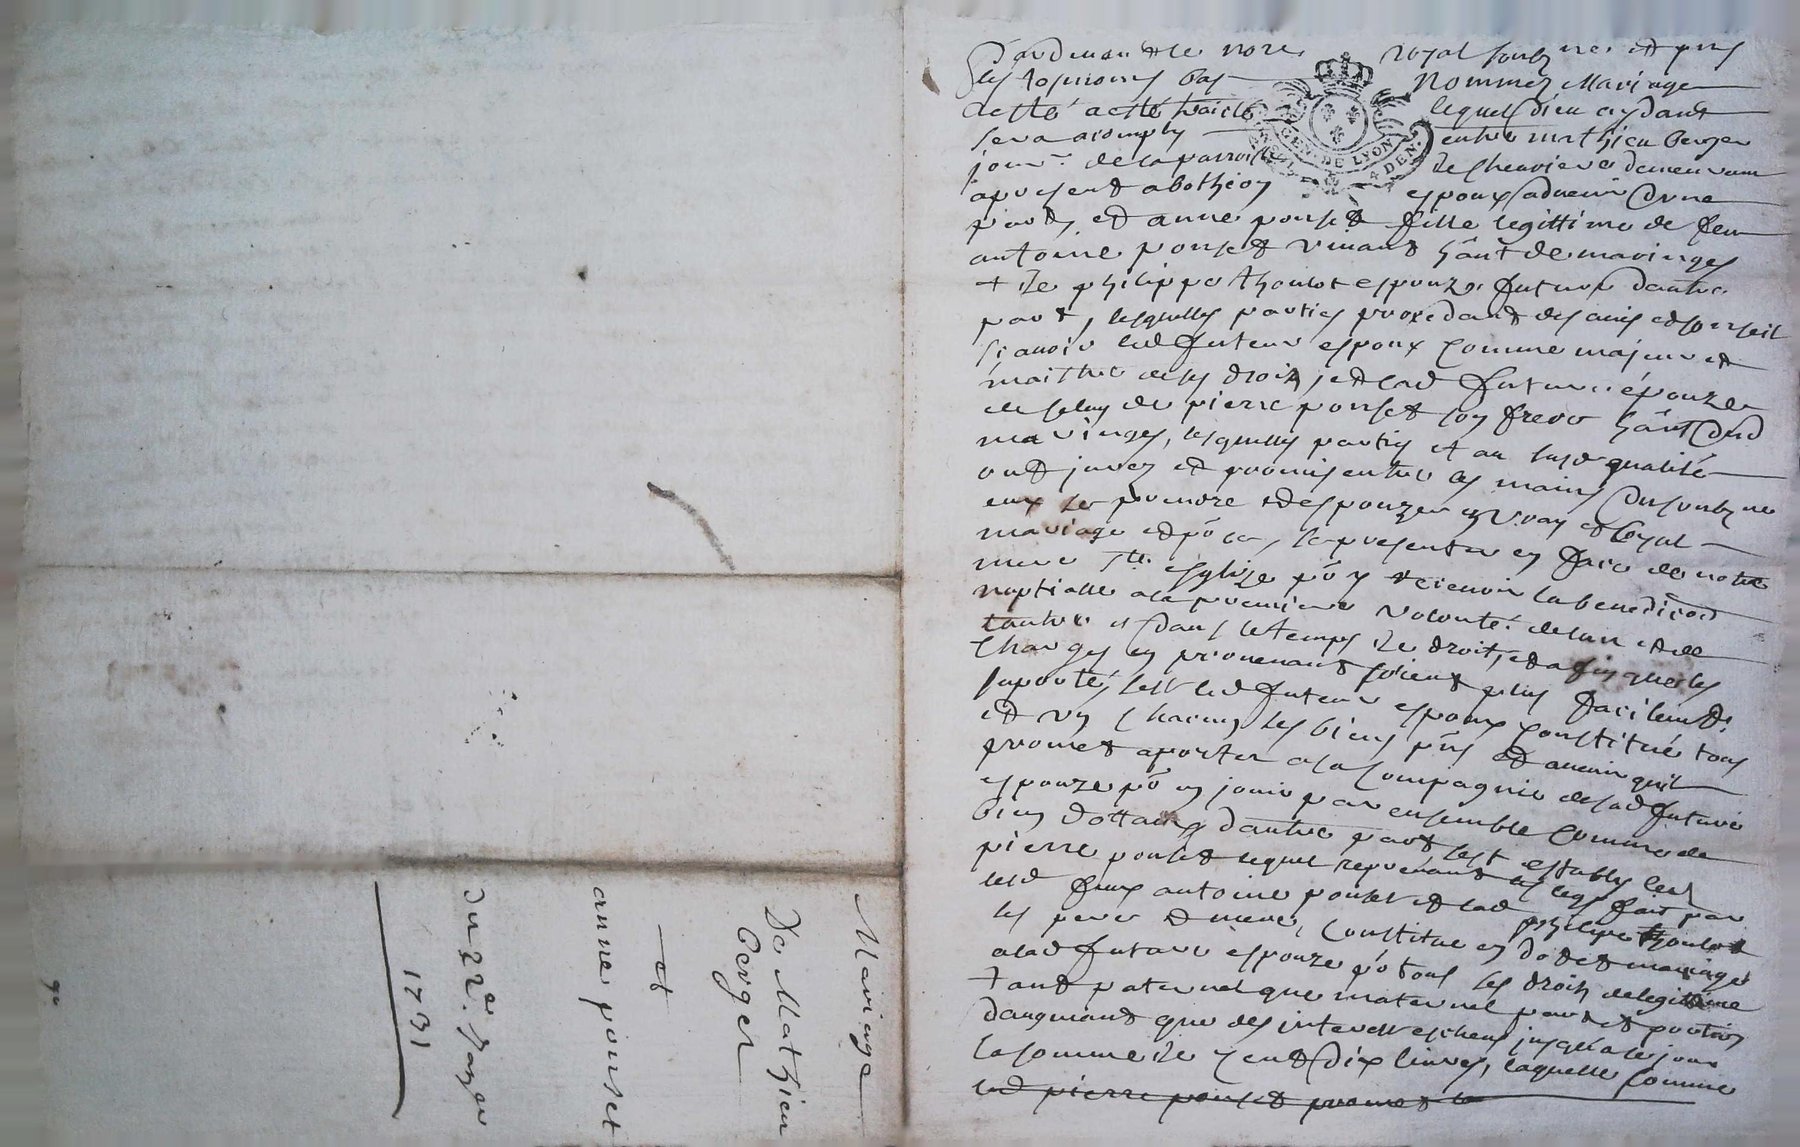 Mariage
De Mathieu
Berger
et
anne ponset
Du 22e. Janver
1731
Pardevant le nore royal soubzne et pnts
les tesmoins bas nommez Mariage
a esté acsté traicté lequel dieu aydant
sera acomply entre mathieu berger
jour.r de la parroisse de chevriere demeurant
apresent a bothéon espoux advenir d'une
part, et anne ponset fille legittime de feu
antoine ponset vivant hant de maringes
+ de philippe thoulot espouze future d'autre
part, lesquelles parties procedant des avis et conseil
sçavoir led futeur espoux comme majeur et
maithre de ses droits, et lad future épouze
de celuy de pierre ponset son frere hant dud
maringes, lesquelles parties et au susd qualité
ont jurez et promis entre les mains du soubzne
eux se prendre et espouzer en vray et loyal
mariage et po ce, se presenter en face de notre
mere ste esglize po y recevoir la benediction
nuptialle a la premiere volonté de l'un et de
l'autre et dans le temps de droit, et a fin que les
charges en provenant soient plus facilemt
suporté, s'est led futeur espoux constitué tous
et un chacuns ses biens pnts et avenir qu'il
promet aporter a la compagnie de sad future
espouze po en jouir par ensemble comme de
bien dottaux d'autre part s'est estably led
pierre ponset lequel reprenant les legs fait par
lesd feux antoine ponset et lad philipe thoulot
ses pere et mere, constitue en dot et mariage
a lad future espouze po tous ses droits de legittime
tant paternel que maternel part et portion
d'augmant que des interest escheus jusqu'a ce jour
la somme de cent dix livres, laquelle somme
led pierre ponset promet
GEN. DE LYON